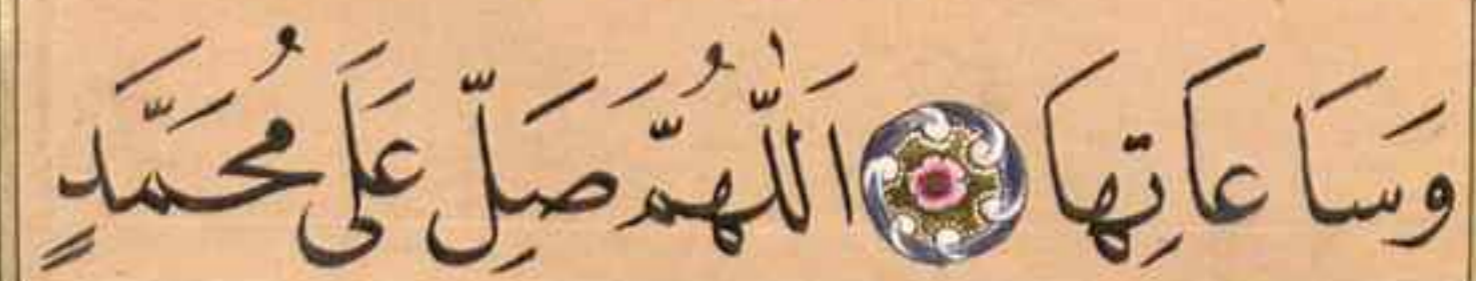 وَسَاعَاتِهَا اَللّٰهُمَّ صَلِّ عَلَى مُحَمَّدٍ